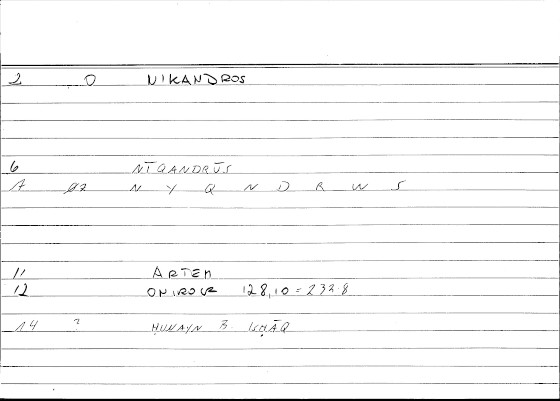 2 0 NIKANDROS
6 NĪQANDRŪS
7 gz N Y Q N D R W S
11 ARTEM
12 ONIROCR 128,10 = 232.8
14 ? ḤUNAYN B. ISḤĀQ